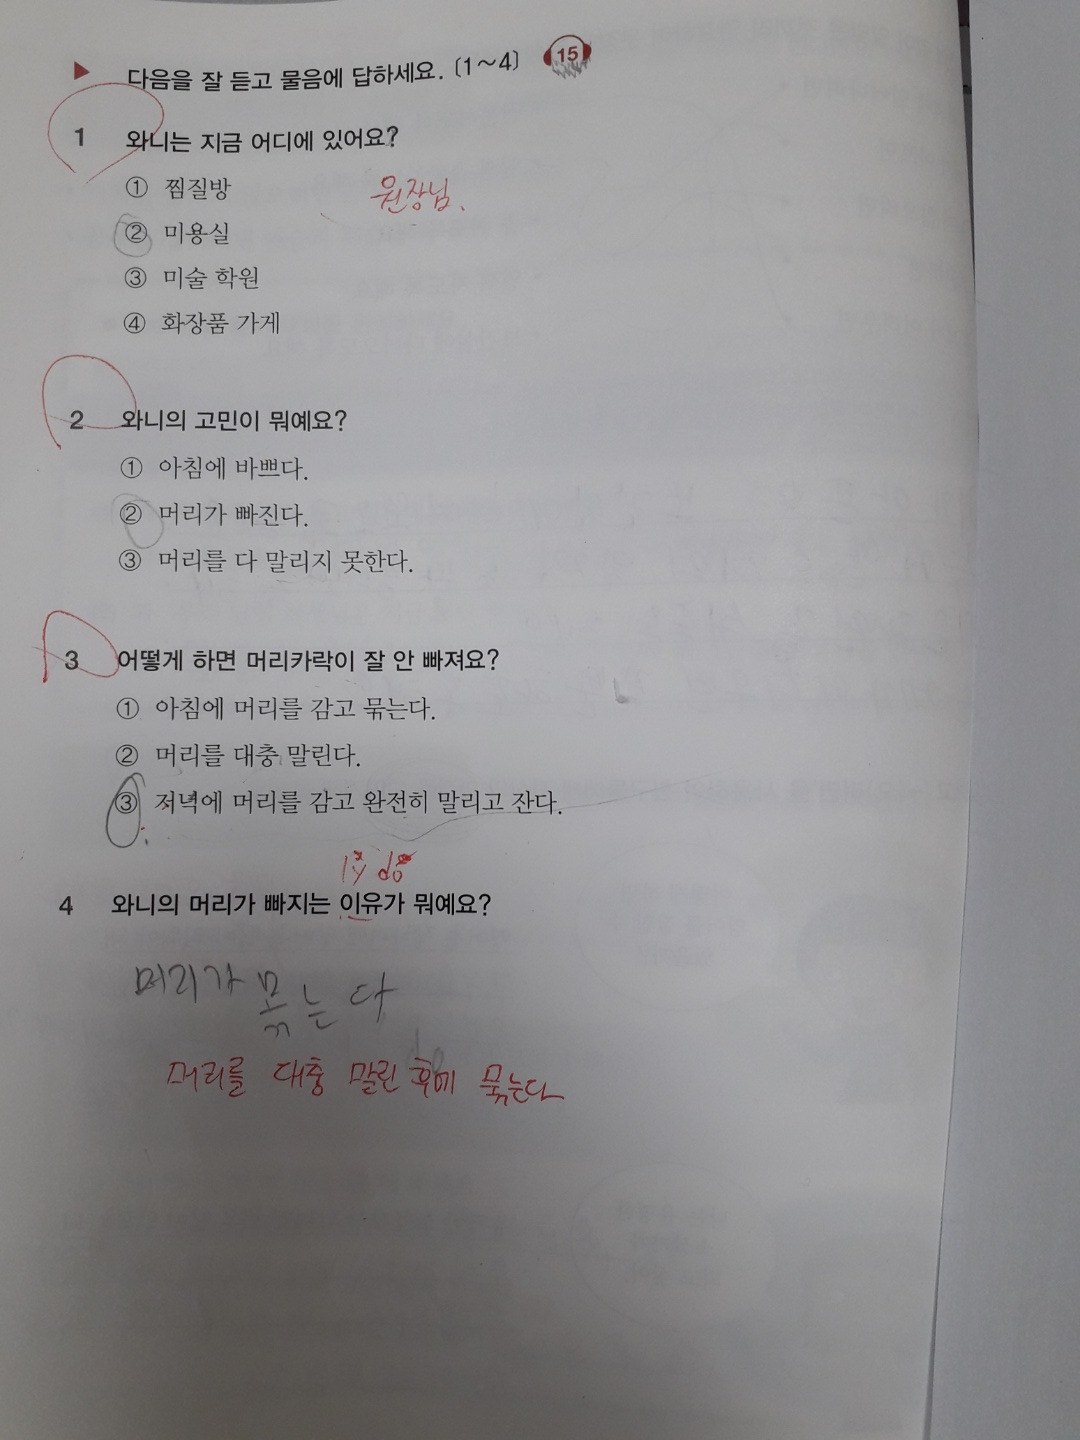 ▶ 다음을 잘 듣고 물음에 답하세요. (1~4) 15
1 와니는 지금 어디에 있어요?
① 찜질방 원장님.
② 미용실
③ 미술 학원
④ 화장품 가게
2 와니의 고민이 뭐예요?
① 아침에 바쁘다.
② 머리가 빠진다.
③ 머리를 다 말리지 못한다.
3 어떻게 하면 머리카락이 잘 안 빠져요?
① 아침에 머리를 감고 묶는다.
② 머리를 대충 말린다.
③ 저녁에 머리를 감고 완전히 말리고 잔다.
lý do
4 와니의 머리가 빠지는 이유가 뭐예요?
머리가 묶는다
머리를 대충 말린 후에 묶는다